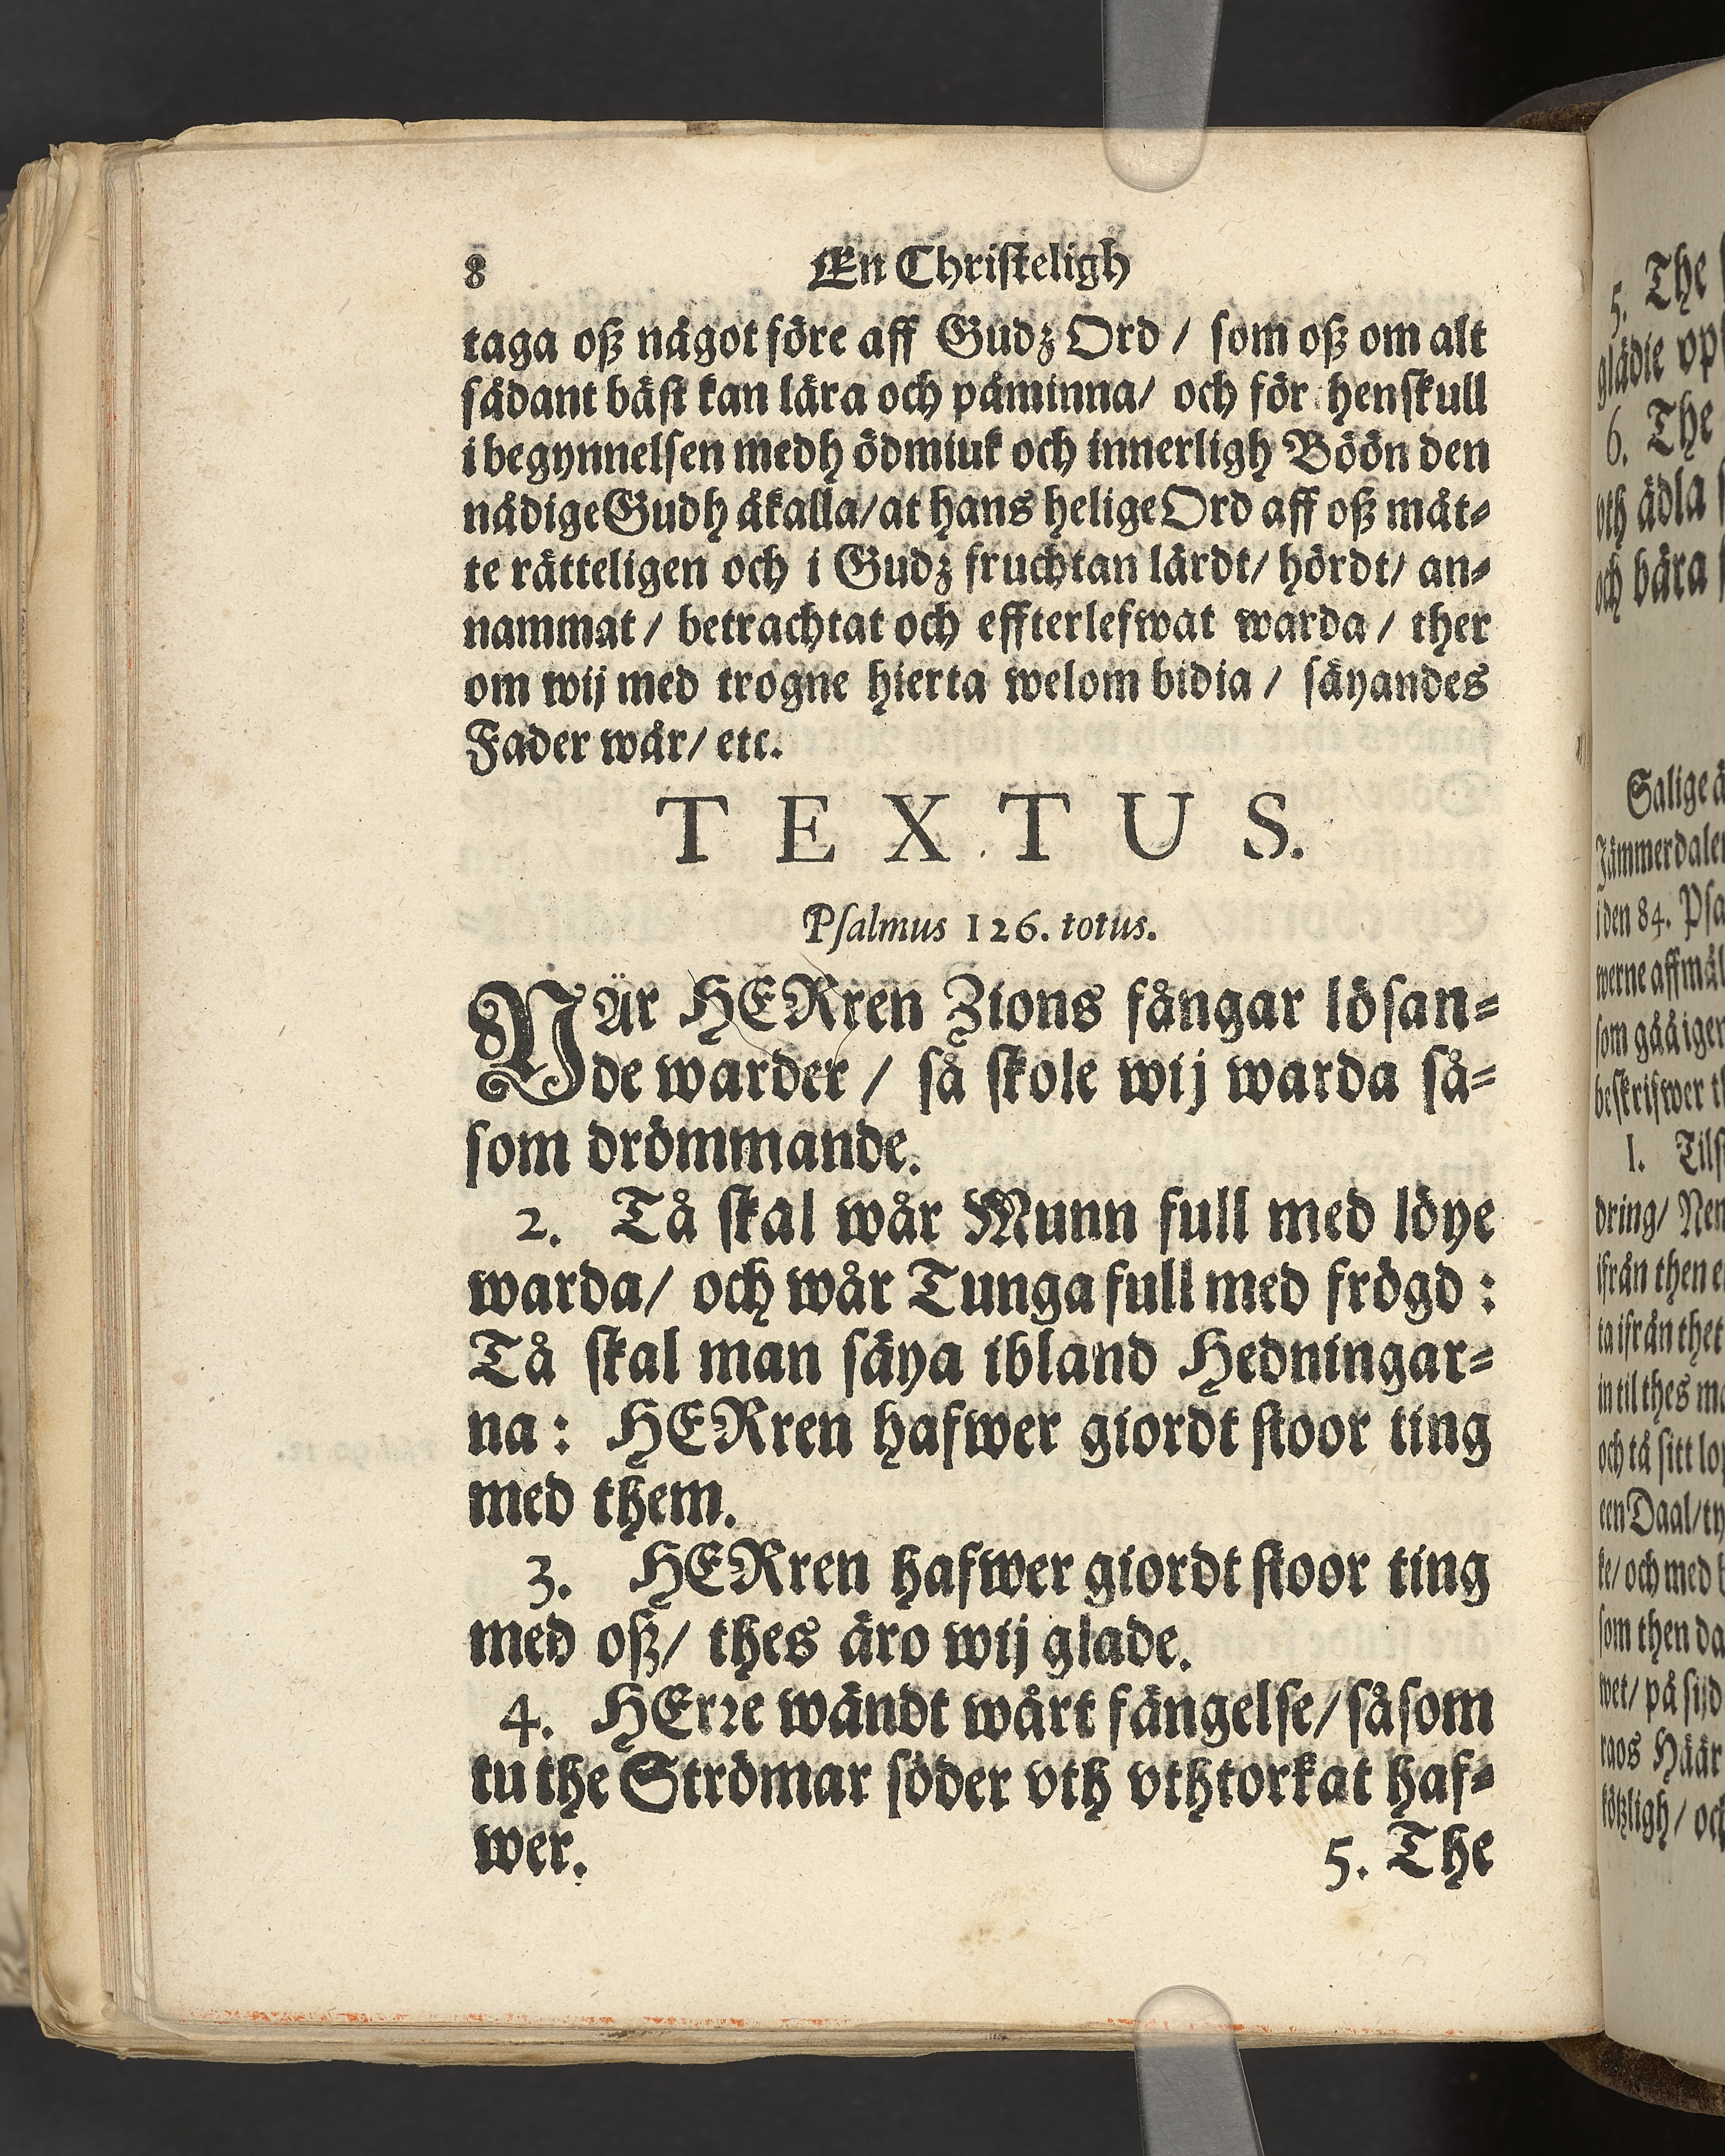 8 En Christeligh
taga oß något före aff Gudz Ord / som oß om alt
sådant bäst kan lära och påminna/ och för henskull
i begynnelsen medh ödmiuk och innerligh Böön den
nådige Gudh åkalla/ at hans helige Ord aff oß måt-
te rätteligen och i Gudz fruchtan lärdt/ hördt/ an-
nammat / betrachtat och effterlefwat warda / ther
om wij med trogne hierta welom bidia / säyandes
Fader wår/ etc.
TEXTUS.
Psalmus 126. totus.
NÄr HERren Zions fångar lösan-
de warder / så skole wij warda så-
som drömmande.
2. Tå skal wår Munn full med löye
warda/ och wår Tunga full med frögd :
Tå skal man säya ibland Hedningar-
na : HERren hafwer giordt stoor ting
med them.
3. HERren hafwer giordt stoor ting
med oß/ thes äro wij glade.
4. HErre wändt wårt fängelse/ såsom
tu the Strömar söder vth vthtorkat haf-
wer.
5. The
5. The
glädie
6. The
vth ädla
och bära
Salige
Jämmerdale
i den 84.
som gåå iger
beskrifwer
I.
dring/
ifrån then
ta ifrån thet
in til thes
och tå sitt
een Daal/
ke/ och med
som then
wet/ på
raos Häär